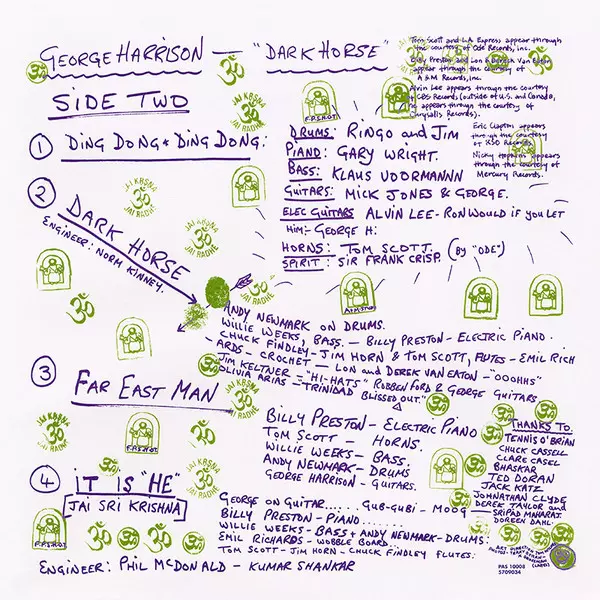 GEORGE HARRISON — "DARK HORSE"
Tom Scott and L.A. Express appear through
the courtesy of Ode Records, Inc.
Billy Preston and Lon & Derek Van Eaton
appear through the courtesy of
A & M Records, Inc.
Alvin Lee appears through the courtesy
of CBS Records (outside of U.S. and Canada,
he appears through the courtesy of
Chrysalis Records).
Eric Clapton appears
through the courtesy
of RSO Records.
Nicky Hopkins appears
through the courtesy of
Mercury Records.
SIDE TWO
① DING DONG * DING DONG:
DRUMS: RINGO and JIM
PIANO: GARY WRIGHT.
BASS: KLAUS VOORMANN
GUITARS: MICK JONES & GEORGE.
ELEC GUITARS ALVIN LEE - RON WOULD IF YOU LET
HIM:- GEORGE H:
HORNS: TOM SCOTT. (By "ODE")
SPIRIT: SIR FRANK CRISP.
② DARK HORSE
ENGINEER: NORM KINNEY.
ANDY NEWMARK ON DRUMS.
WILLIE WEEKS, BASS. — BILLY PRESTON - ELECTRIC PIANO.
CHUCK FINDLEY - JIM HORN & TOM SCOTT, FLUTES - EMIL RICH
-ARDS - CROCHET — LON and DEREK VAN EATON - "OOOHHS"
JIM KELTNER = "HI-HATS" ROBBEN FORD & GEORGE GUITARS
OLIVIA ARIAS - "TRINIDAD BLISSED OUT."
③ FAR EAST MAN
BILLY PRESTON - ELECTRIC PIANO
TOM SCOTT - HORNS.
WILLIE WEEKS - BASS.
ANDY NEWMARK - DRUMS
GEORGE HARRISON - GUITARS.
THANKS TO.
TENNIS O'BRIAN
CHUCK CASSELL
CLARE CASEL
BHASKAR
TED DORAN
JACK KATZ
JOHNATHAN CLYDE
DEREK TAYLOR and
SRIPAD MAHARAJ.
DOREEN DAHL.
④ iT IS "HE"
JAI SRI KRISHNA
GEORGE ON GUITAR..... GUB-GUBI - MOOG
BILLY PRESTON - PIANO.......
WILLIE WEEKS - BASS + ANDY NEWMARK - DRUMS:
EMIL RICHARDS - WOBBLE BOARD...
TOM SCOTT - JIM HORN - CHUCK FINDLEY FLUTES:
ENGINEER: PHIL McDONALD - KUMAR SHANKAR
PAS 10008
5709034
JAI KRSNA
ॐ
JAI RADHE
F.P.S.H.O.T.